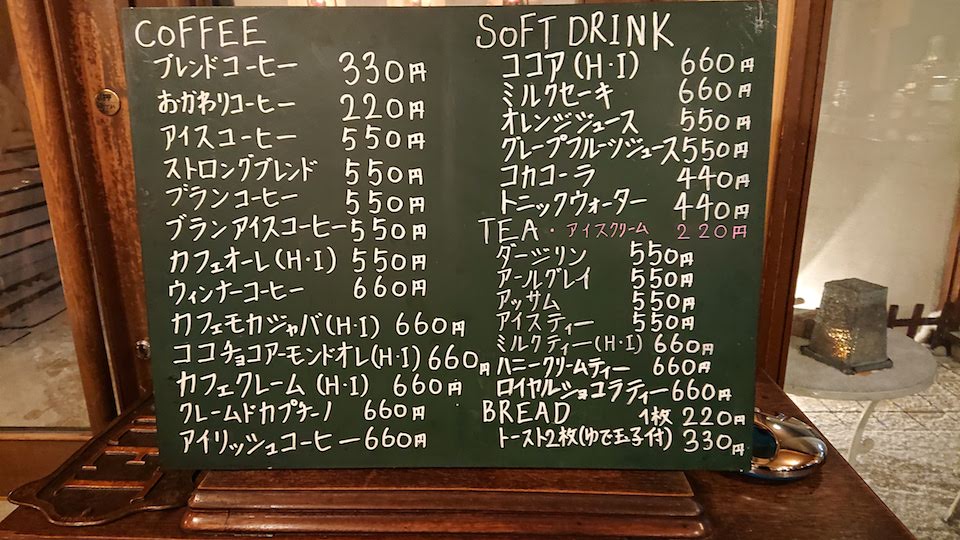 COFFEE
ブレンドコーヒー 330円
おかわりコーヒー 220円
アイスコーヒー 550円
ストロングブレンド 550円
ブランコーヒー 550円
ブランアイスコーヒー 550円
カフェオーレ(H・I) 550円
ウィンナーコーヒー 660円
カフェモカジャバ(H・I) 660円
ココチョコアーモンドオレ(H・I) 660円
カフェクレーム (H・I) 660円
クレームドカプチーノ 660円
アイリッシュコーヒー 660円
SOFT DRINK
ココア(H・I) 660円
ミルクセーキ 660円
オレンジジュース 550円
グレープフルーツジュース 550円
コカコーラ 440円
トニックウォーター 440円
TEA・アイスクリーム 220円
ダージリン 550円
アールグレイ 550円
アッサム 550円
アイスティー 550円
ミルクティー(H・I) 660円
ハニークリームティー 660円
ロイヤルショコラティー 660円
BREAD 1枚 220円
トースト2枚(ゆで玉子付) 330円